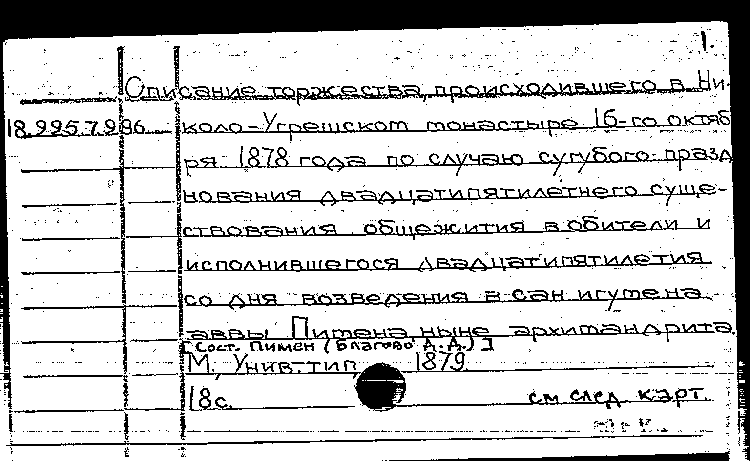 1.
Описание торжества, происходившего в Ни-
18.995.7.986 коло-Угрешском монастыре 16-го октяб
ря 1878 года по случаю сугубого празд
нования двадцатипятилетнего суще-
ствования общежития в обители и
исполнившегося двадцатипятилетия
со дня возведения в сан игумена
аввы Пимена, ныне архимандрита.
[Сост. Пимен (Благово Д.Д.)]
М., Унив. тип, 1879
18 с. см след. карт.